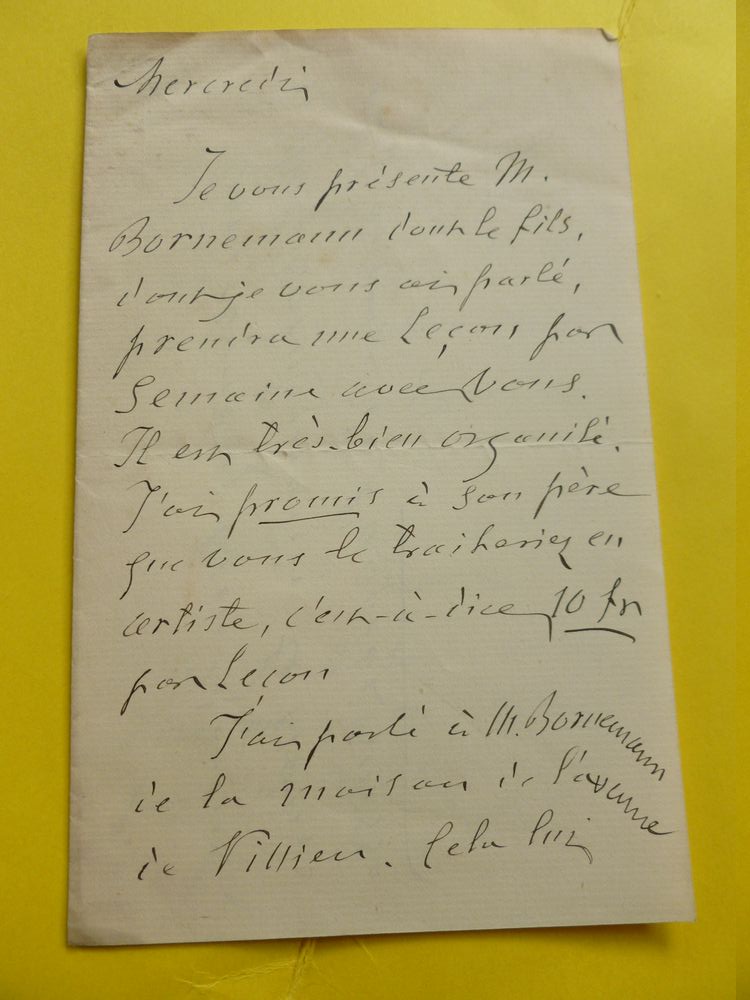 Mercredi
Je vous présente M.
Bornemann dont le fils,
dont je vous ai parlé,
prendra une leçon par
semaine avec vous.
Il est très-bien organisé.
J'ai promis à son père
que vous le traiteriez en
artiste, c'est-à-dire 10 fr
par leçon
J'ai parlé à M. Bornemann
de la maison de l'avenue
de Villiers. Cela lui